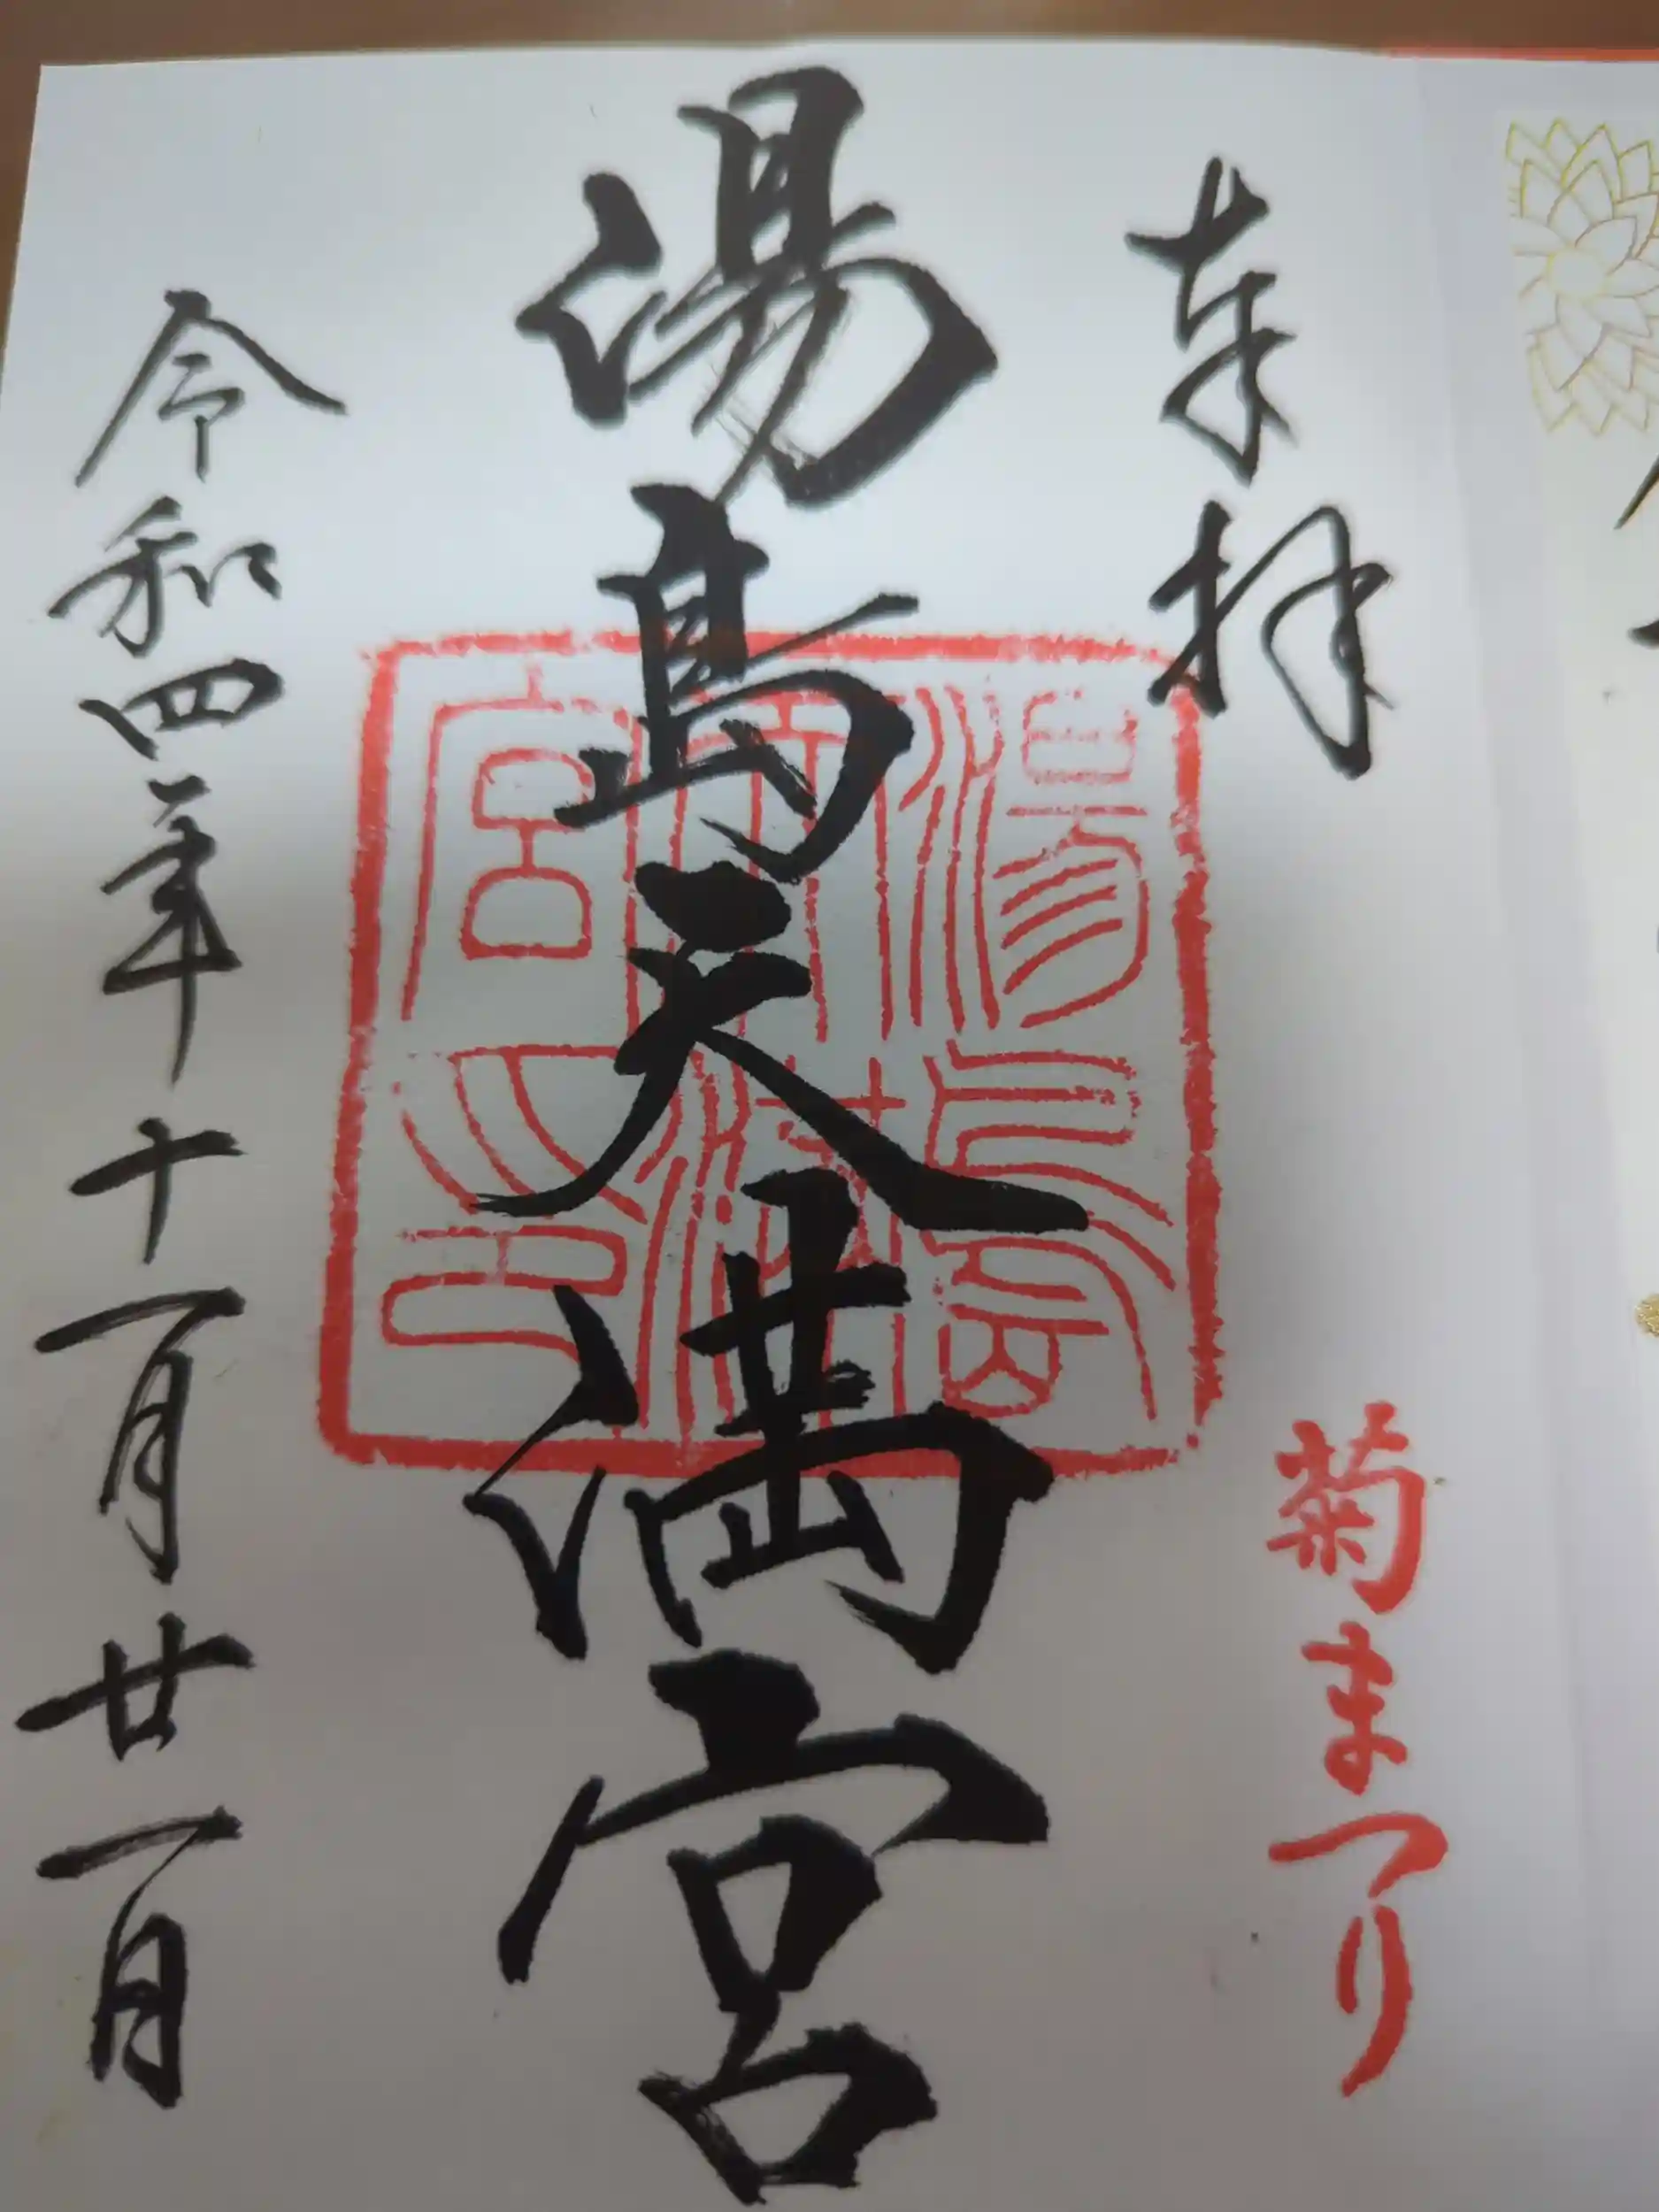 奉拝
菊まつり
湯島天満宮
湯島天満宮之印
令和四年十一月廿一日